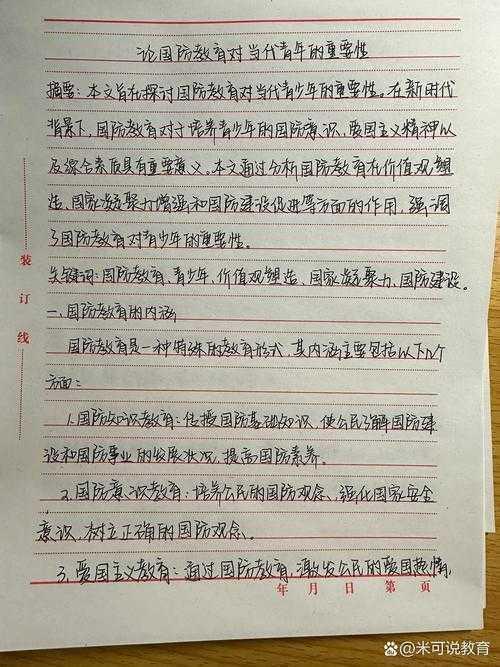 论国防教育对当代青年的重要性
摘要：本文旨在探讨国防教育对当代青少年的重要性。在新时代
背景下，国防教育对于培养青少年的国防意识，爱国主义精神以
及综合素质具有重要意义。本文通过分析国防教育在价值观塑
造、国家凝聚力增强和国防建设促进等方面的作用，强调
了国防教育对青少年的重要性。
关键词：国防教育、青少年、价值观塑造、国家凝聚力、国防建设。
一、国防教育的内涵
国防教育是一种特殊的教育形式，其内涵主要包括以下几个
方面：
1.国防知识教育：传授国防基础知识，使公民了解国防建
设和国防事业的发展状况，提高国防素养。
2.国防意识教育：培养公民的国防观念，强化国家安全
意识，树立正确的国防观念。
3.爱国主义教育：通过国防教育，激发公民的爱国热情，
装订线
年 月 日 第 页
米可说教育